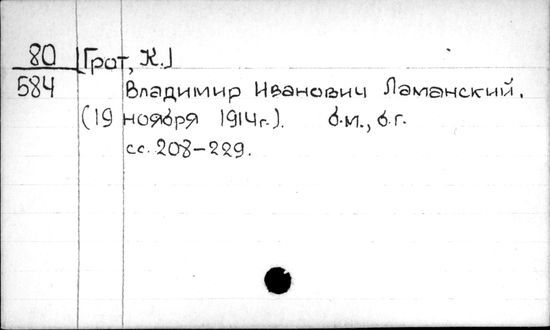 80 [Грот, К.]
584 Владимир Иванович Ламанский.
(19 ноября 1914г.). б.м., б.г.
сс. 208-229.